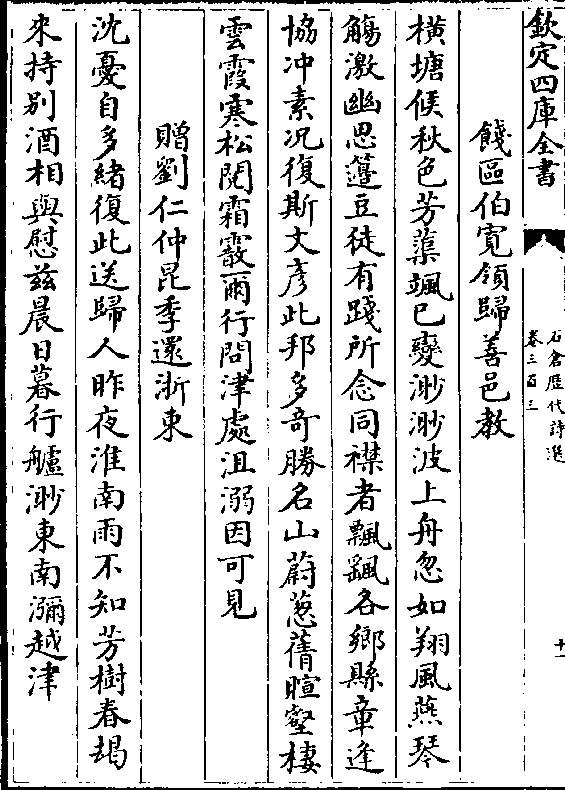 欽定四庫全書
石倉歷代詩選
卷三百三
十一
餞區伯寛領歸善邑教
横塘候秋色芳蕖颯已變渺渺波上舟忽如翔風燕琴
觴激幽思籩豆徒有踐所念同襟者飄飄各鄉縣章逢
協冲素况復斯文彦此邦多奇勝名山蔚葱蒨暄壑棲
雲霞寒松閲霜霰爾行問津處沮溺因可見
贈劉仁仲昆季還浙東
沈憂自多緒復此送歸人昨夜淮南雨不知芳樹春朅
来持别酒相與慰兹晨日暮行艫渺東南瀰越津